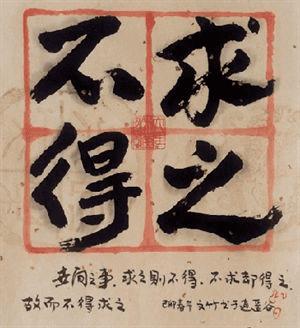 求之
不得
世间之事，求之则不得、不求却得之.
故而不得求之